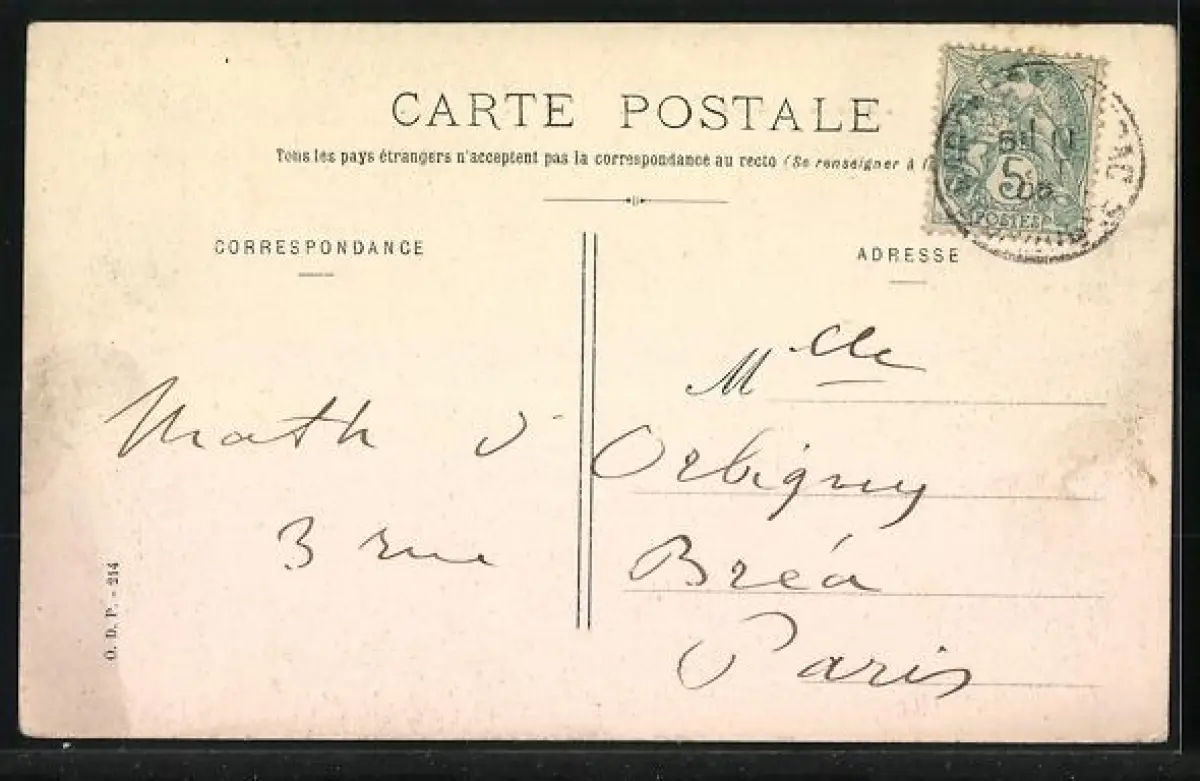 CARTE POSTALE
Tous les pays étrangers n'acceptent pas la correspondance au recto (Se renseigner à
CORRESPONDANCE
ADRESSE
5c
POSTES
05
Mlle
Math d'Orbigny
3 rue Bréa
Paris
O. D. P. - 214